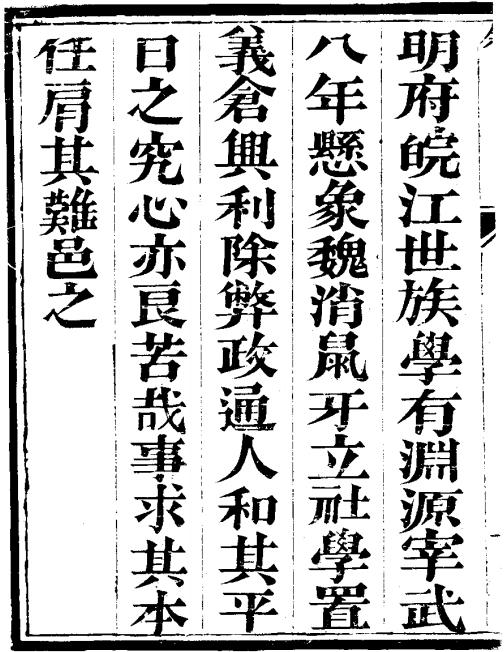 明府皖江世族學有淵源宰武
八年懸象魏消鼠牙立社學置
義倉興利除弊政通人和其平
日之究心亦良苦哉事求其本
任肩其難邑之